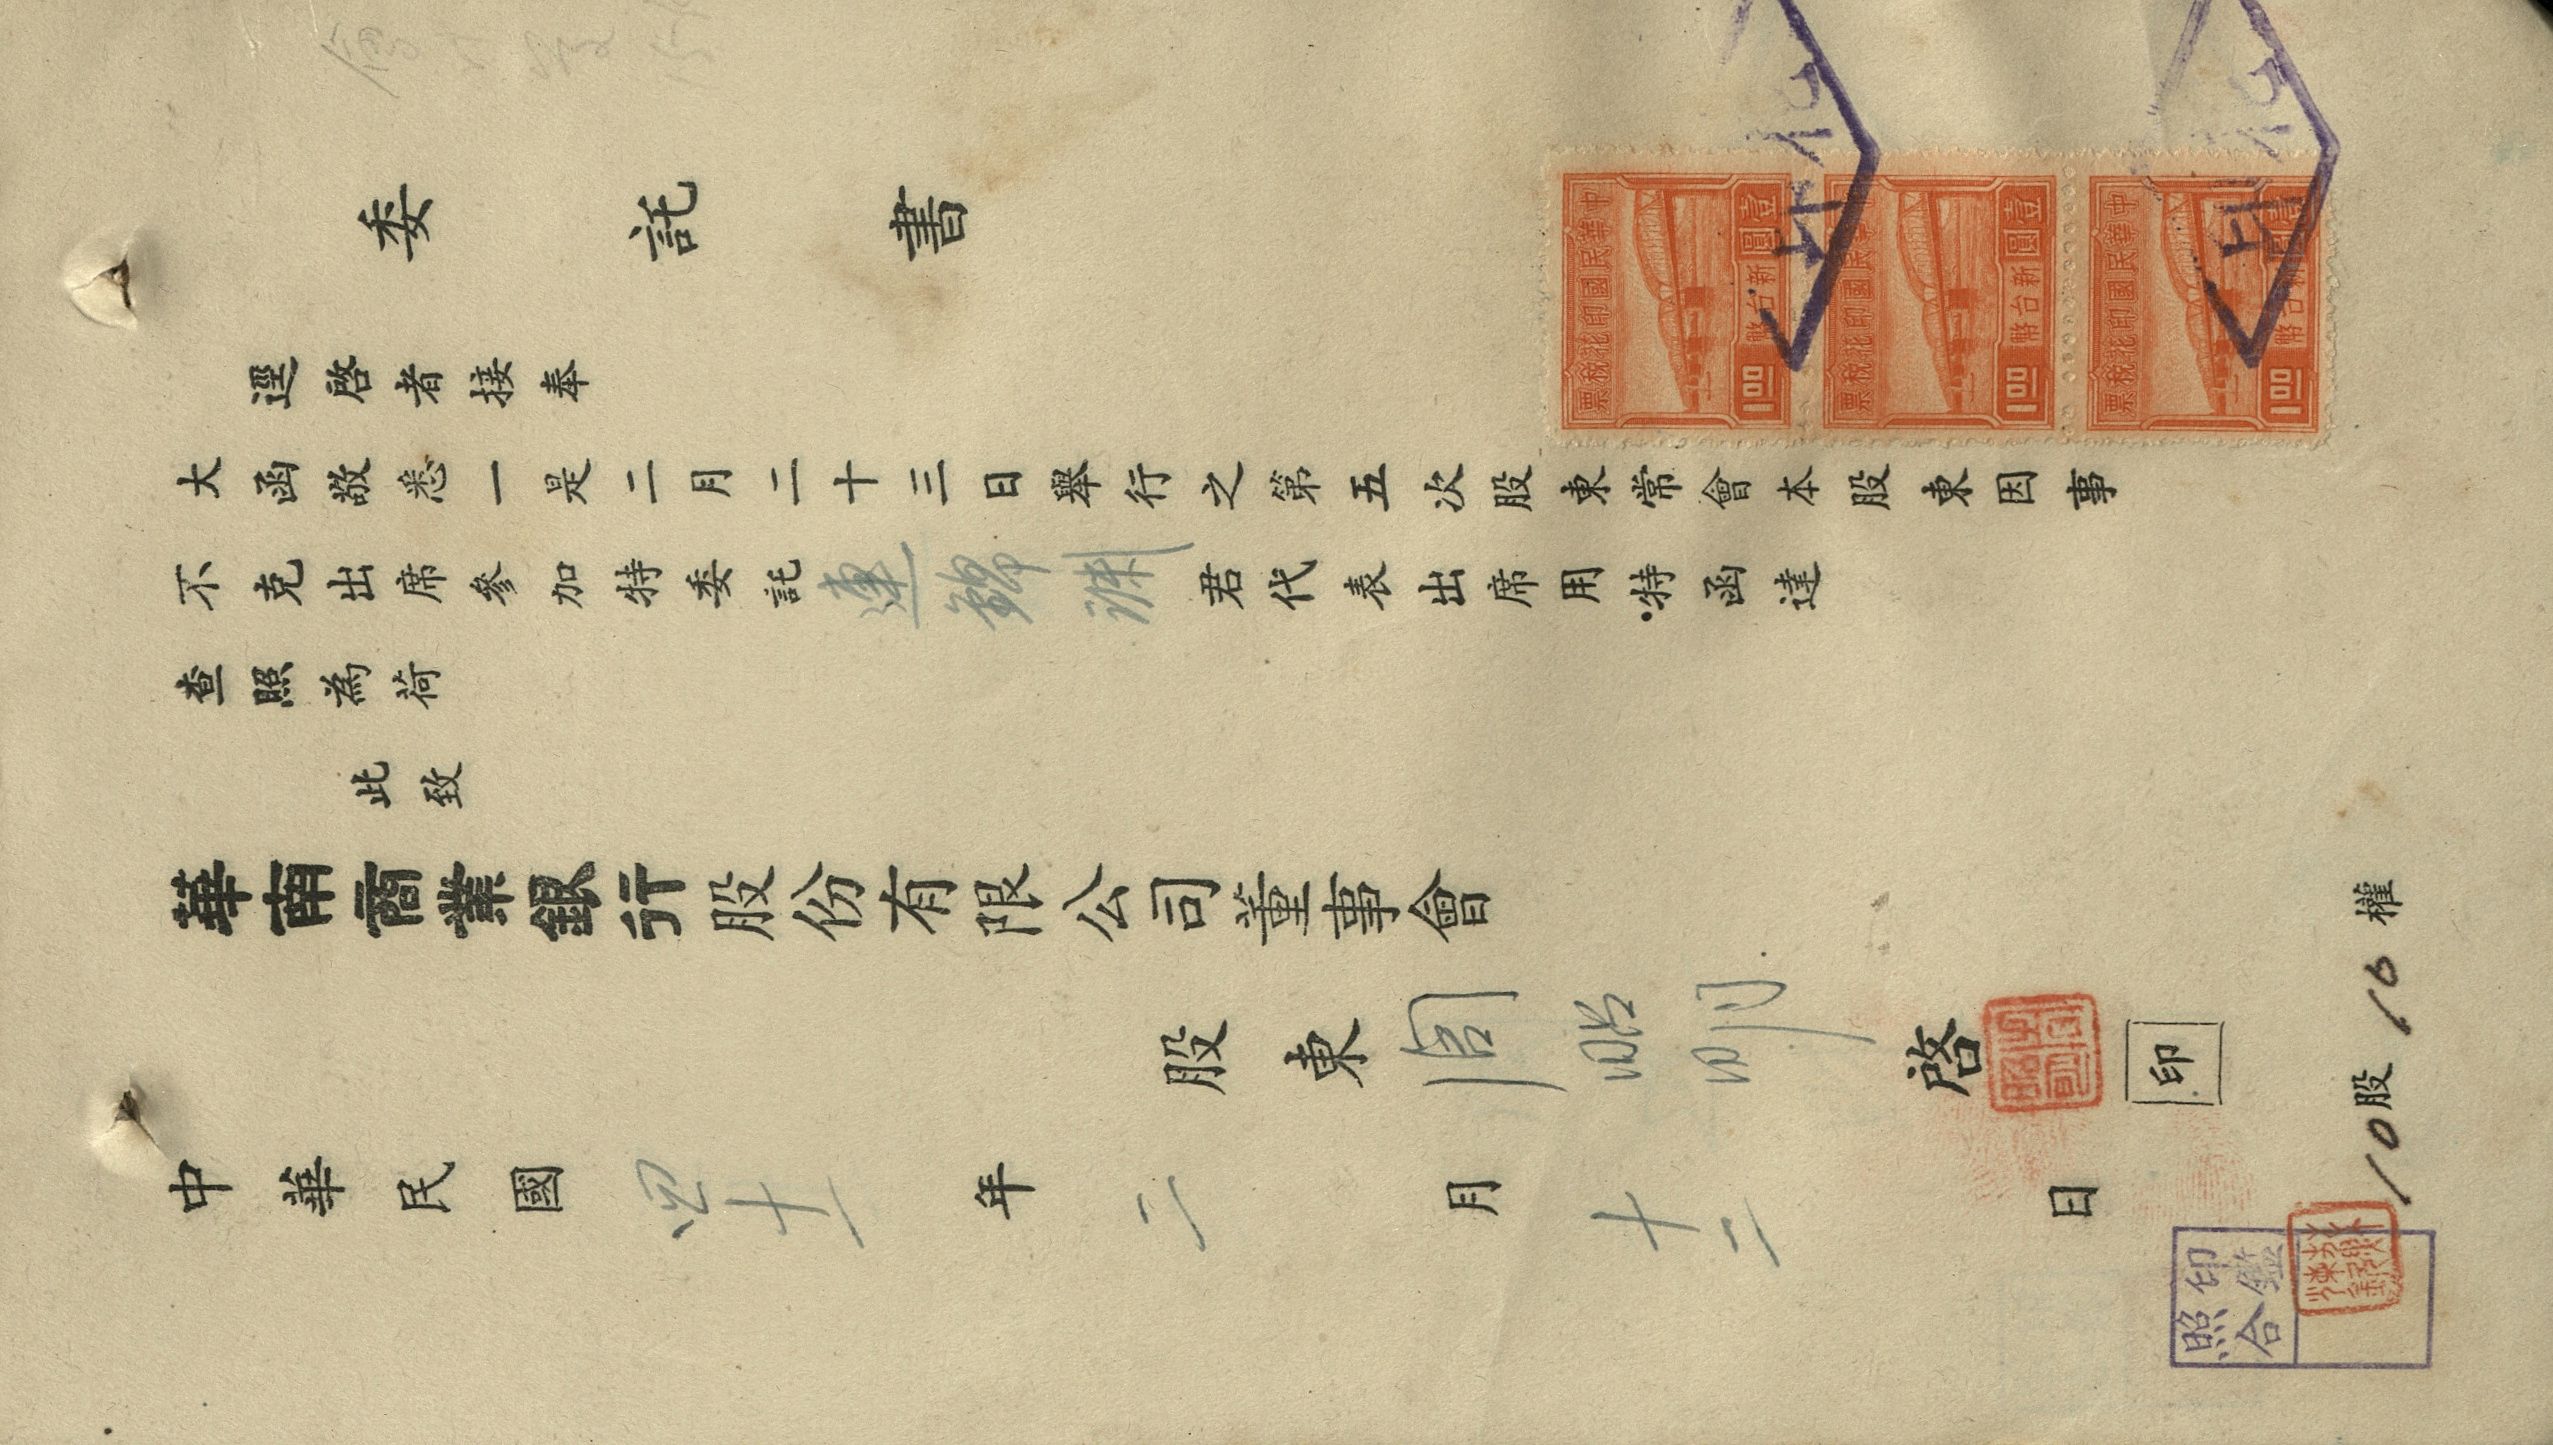 委託書
逕啓者接奉
大函敬悉一是二月二十三日舉行之第五次股東常會本股東因事
不克出席參加特委託連錦淵君代表出席用特函達
查照為荷
此致
華南商業銀行股份有限公司董事會
股東周昭明啓
印
中華民國四十一年二月十二日
10股10權
印鑑
照合
中華民國印花稅票
壹圓
新台幣
1.00
中華民國印花稅票
壹圓
新台幣
1.00
中華民國印花稅票
壹圓
新台幣
1.00